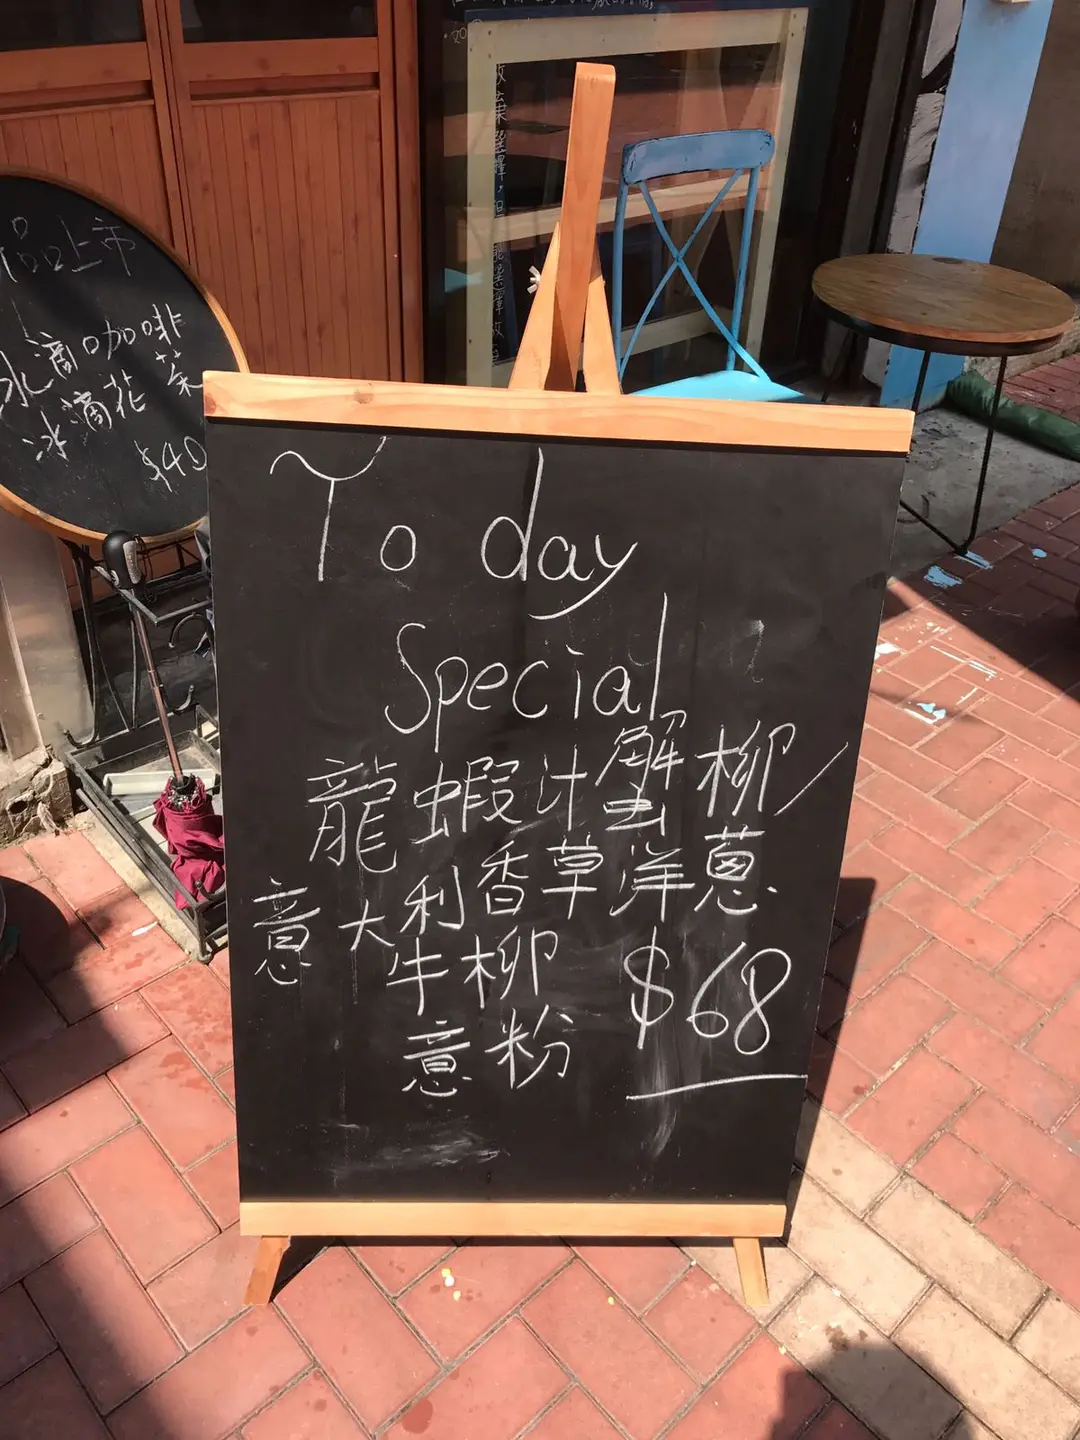 品上市
冰滴咖啡
冰滴花茶
$40
To day
Special
龍蝦汁蟹柳
意大利香草洋蔥
牛柳
意粉
$68